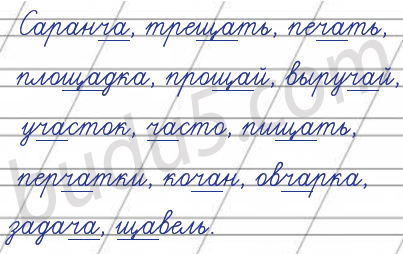 Саранча, трещать, печать,
площадка, прощай, выручай,
участок, часто, пищать,
перчатки, кочан, овчарка,
задача, щавель.
budu5.com